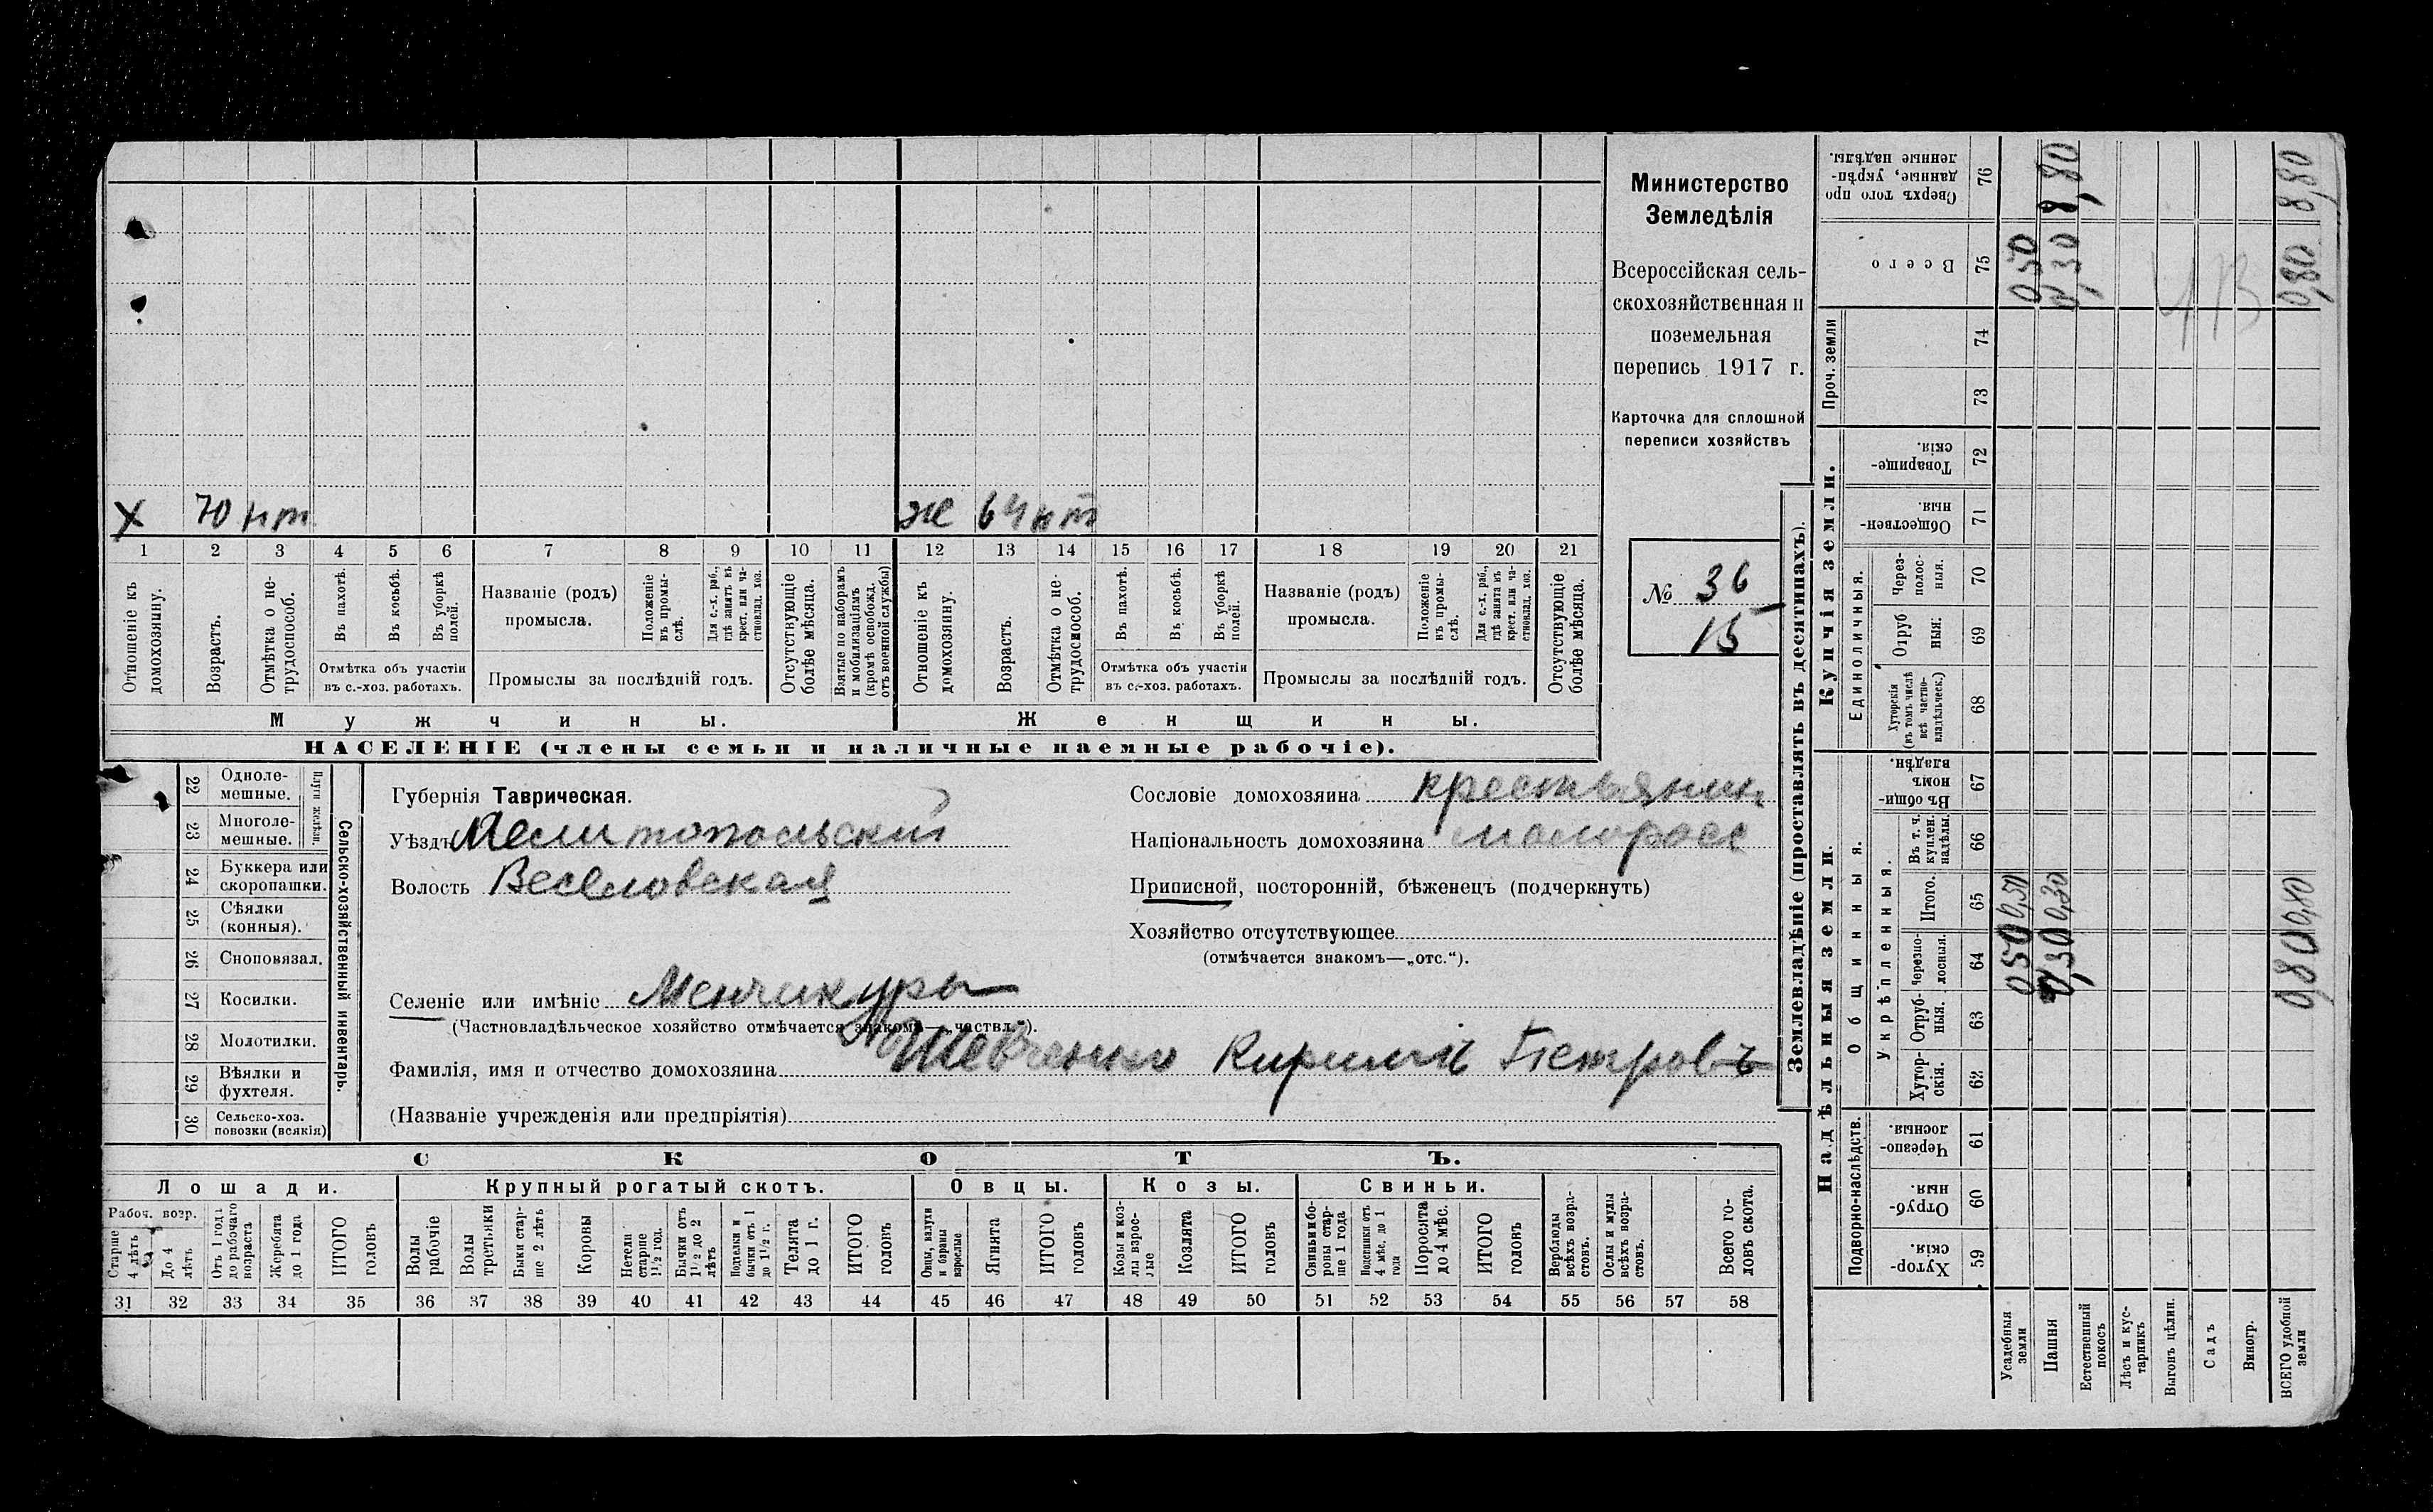 Министерство
Земледѣлія
Всероссійская сель-
скохозяйственная и
поземельная
перепись 1917 г.
Карточка для сплошной
переписи хозяйствъ
№ 36
15
х 70 нт
ж 64 нт
1 2 3 4 5 6 7 8 9 10 11 12 13 14 15 16 17 18 19 20 21
Отношеніе къ домохозяину.
Возрастъ.
Отмѣтка о не-трудоспособ.
Въ пахотѣ.
Въ косьбѣ.
Въ уборкѣ полей.
Отмѣтка объ участіи
въ с.-хоз. работахъ.
Названіе (родъ)
промысла.
Положеніе въ промы-слѣ.
Для с.-х. раб., гдѣ занятъ въ крест. или ча-стновлад. хоз.
Промыслы за послѣдній годъ.
Отсутствующіе болѣе мѣсяца.
Взятые по наборамъ и мобилизаціямъ (кромѣ освобожд. отъ военной службы)
Отношеніе къ домохозяину.
Возрастъ.
Отмѣтка о не-трудоспособ.
Въ пахотѣ.
Въ косьбѣ.
Въ уборкѣ полей.
Отмѣтка объ участіи
въ с.-хоз. работахъ.
Названіе (родъ)
промысла.
Положеніе въ промы-слѣ.
Для с.-х. раб., гдѣ занята въ крест. или ча-стновлад. хоз.
Промыслы за послѣдній годъ.
Отсутствующіе болѣе мѣсяца.
Мужчины.
Женщины.
НАСЕЛЕНІЕ (члены семьи и наличные наемные рабочіе).
22 Одноле-мешные.
23 Многоле-мешные.
Плуги желѣзн.
24 Буккера или скоропашки.
25 Сѣялки (конныя).
26 Сноповязал.
27 Косилки.
28 Молотилки.
29 Вѣялки и фухтеля.
30 Сельско-хоз. повозки (всякія)
Сельско-хозяйственный инвентарь.
Губернія Таврическая.
Уѣздъ Мелитопольский
Волость Веселовская
Сословіе домохозяина крестьянин
Національность домохозяина малоросс
Приписной, посторонній, бѣженецъ (подчеркнуть)
Хозяйство отсутствующее
(отмѣчается знакомъ—„отс.“).
Селеніе или имѣніе Менчикуры
(Частновладѣльческое хозяйство отмѣчается знакомъ—„частвл.“).
Фамилія, имя и отчество домохозяина Шевченко Кирилъ Петровъ
(Названіе учрежденія или предпріятія)
СКОТЪ.
Лошади.
Крупный рогатый скотъ.
Овцы.
Козы.
Свиньи.
Рабоч. возр.
Старше 4 лѣтъ
До 4 лѣтъ
Отъ 1 года до рабочаго возраста
Жеребята до 1 года
ИТОГО головъ
Волы рабочіе
Волы третьяки
Быки стар-ше 2 лѣтъ
Коровы
Нетели старше 1½ год.
Бычки отъ 1½ до 2 лѣтъ
Подтелки и бычки отъ 1 до 1½ г.
Телята до 1 г.
ИТОГО головъ
Овцы, валухи и бараны взрослые
Ягнята
ИТОГО головъ
Козы и коз-лы взрос-лые
Козлята
ИТОГО головъ
Свиньи и бо-ровы стар-ше 1 года
Подсвинки отъ 4 мѣс. до 1 года
Поросята до 4 мѣс.
ИТОГО головъ
Верблюды всѣхъ возра-стовъ.
Ослы и мулы всѣхъ возра-стовъ.
Всего го-ловъ скота.
31 32 33 34 35 36 37 38 39 40 41 42 43 44 45 46 47 48 49 50 51 52 53 54 55 56 57 58
Землевладѣніе (проставлять въ десятинахъ).
Надѣльныя земли.
Купчія земли.
Проч. земли
Подворно-наслѣдств.
Общинныя.
Укрѣпленныя.
Единоличныя.
Сверхъ того про-данные, укрѣп-ленные надѣлы. 76
Всего 75
74
73
Товарище-скія. 72
Обществен-ныя. 71
Через-полос-ныя. 70
Отруб-ныя. 69
Хуторскія (въ томъ числѣ всѣ частно-владѣльческ.) 68
Въ общи-номъ владѣн. 67
Въ т. ч. куплен. надѣлы. 66
Итого. 65
Черезпо-лосныя. 64
Отруб-ныя. 63
Хутор-скія. 62
Черезпо-лосныя. 61
Отруб-ныя. 60
Хутор-скія. 59
Усадебныя земли 0,50 0,50 0,50
Пашня 0,30 0,30 0,30 8,80
Естественный покосъ
Лѣсъ и кус-тарникъ
Выгонъ цѣлин.
Садъ
Виногр.
ВСЕГО удобной земли 0,80 0,80 0,80 8,80